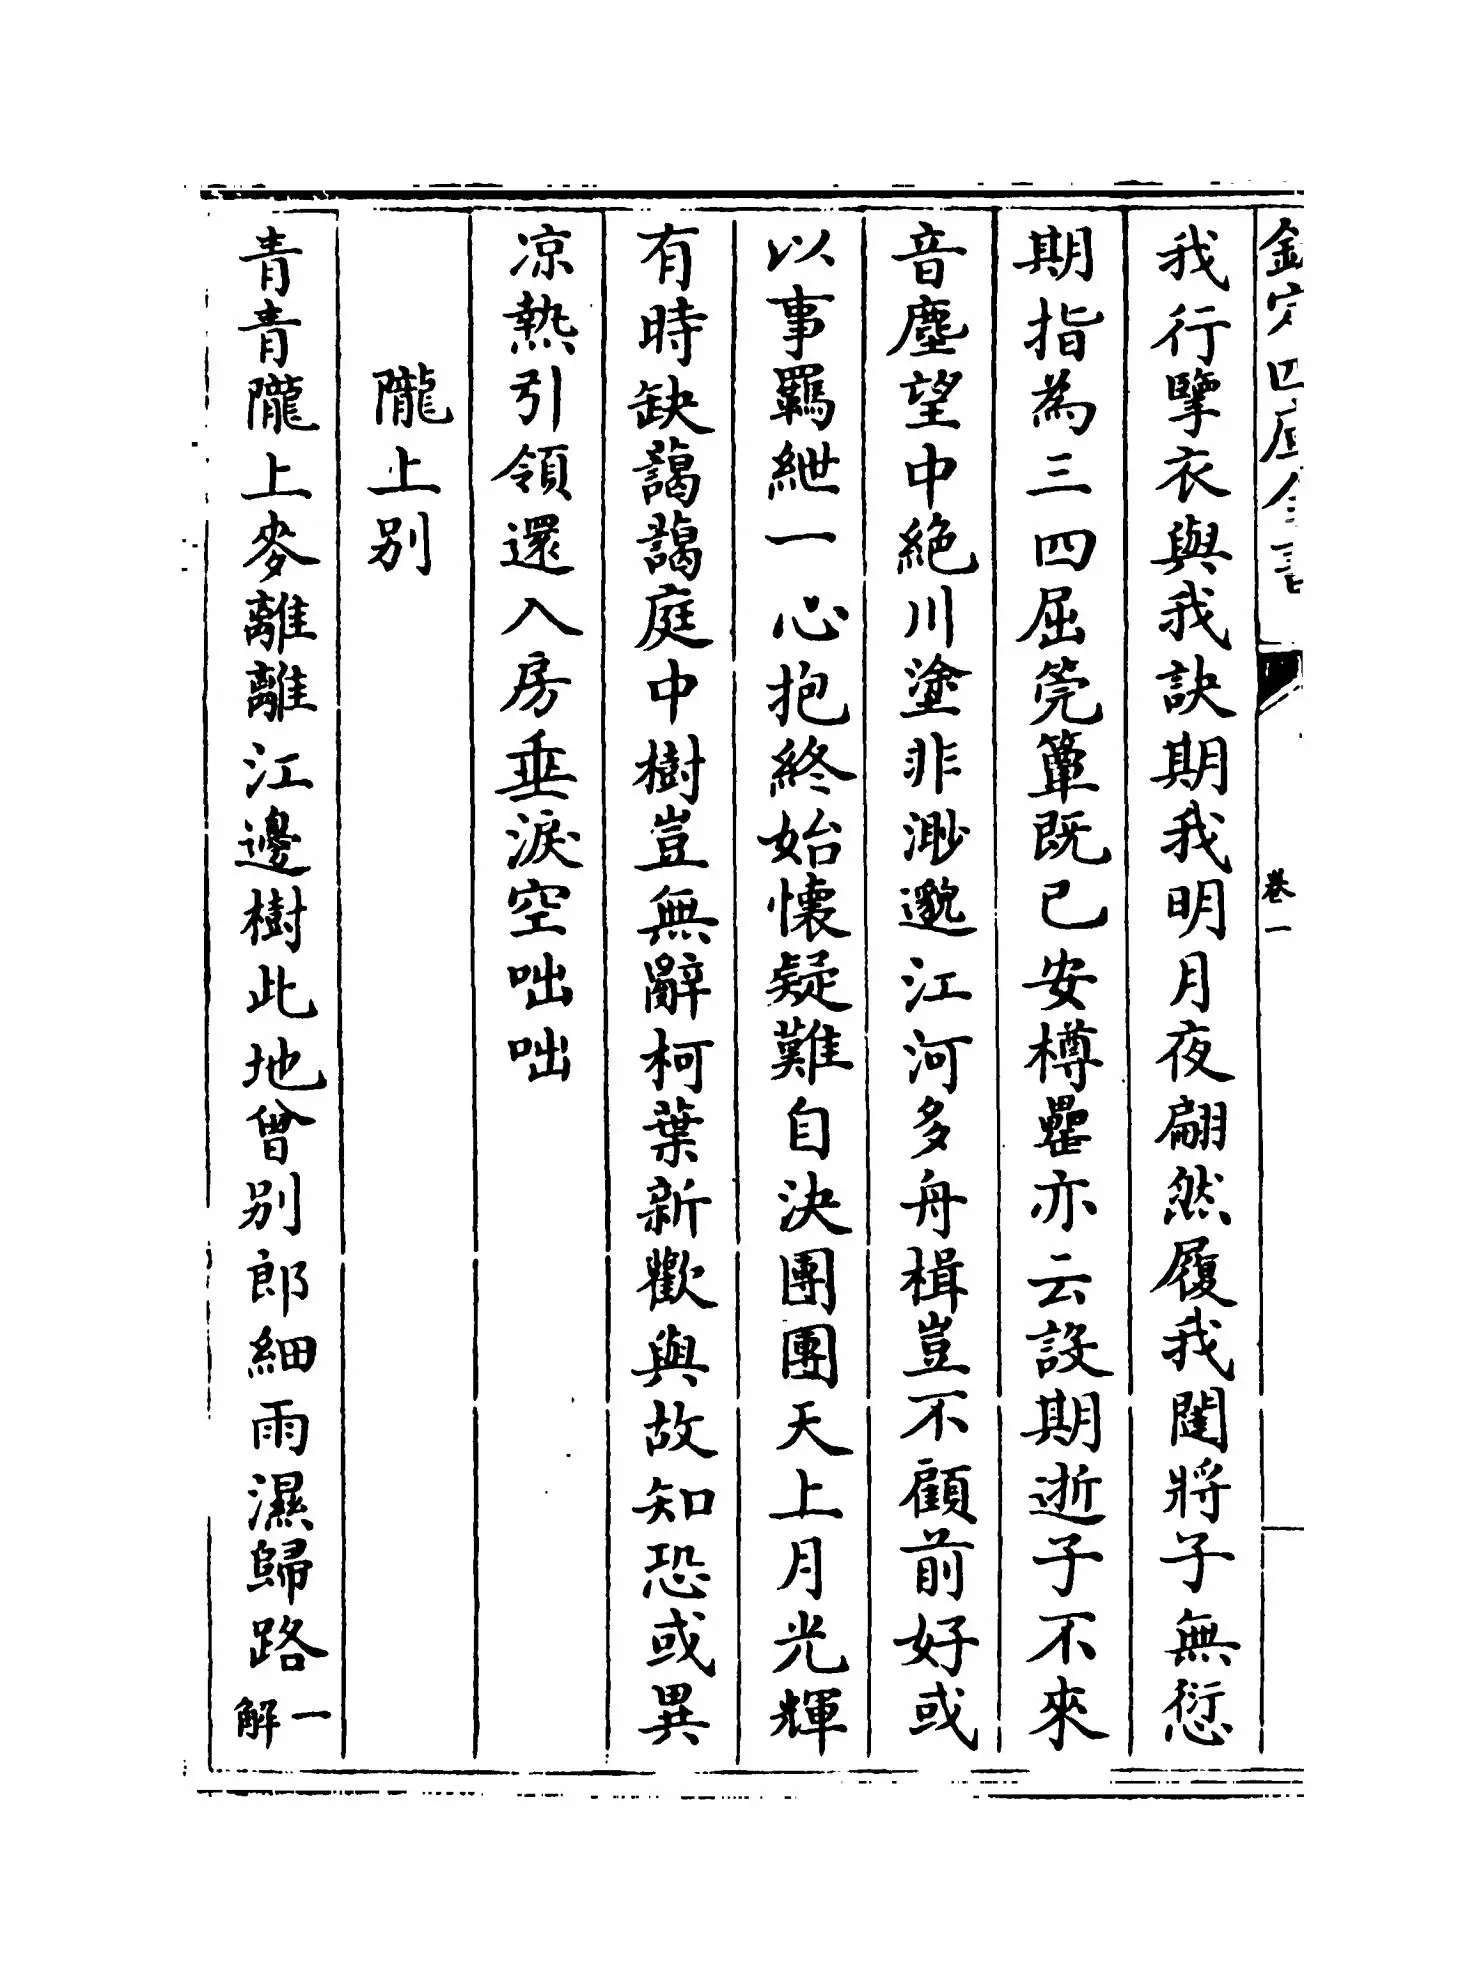 欽定四庫全書
卷一
我行擥衣與我訣期我明月夜翩然履我闥將子無愆
期指為三四屈筦簟既已安樽罍亦云設期逝子不來
音塵望中絶川塗非渺邈江河多舟楫豈不顧前好或
以事羈紲一心抱終始懐疑難自決團團天上月光輝
有時缺藹藹庭中樹豈無辭柯葉新歡與故知恐或異
凉熱引領還入房垂淚空咄咄
隴上别
青青隴上麥離離江邊樹此地曾别郎細雨濕歸路一解